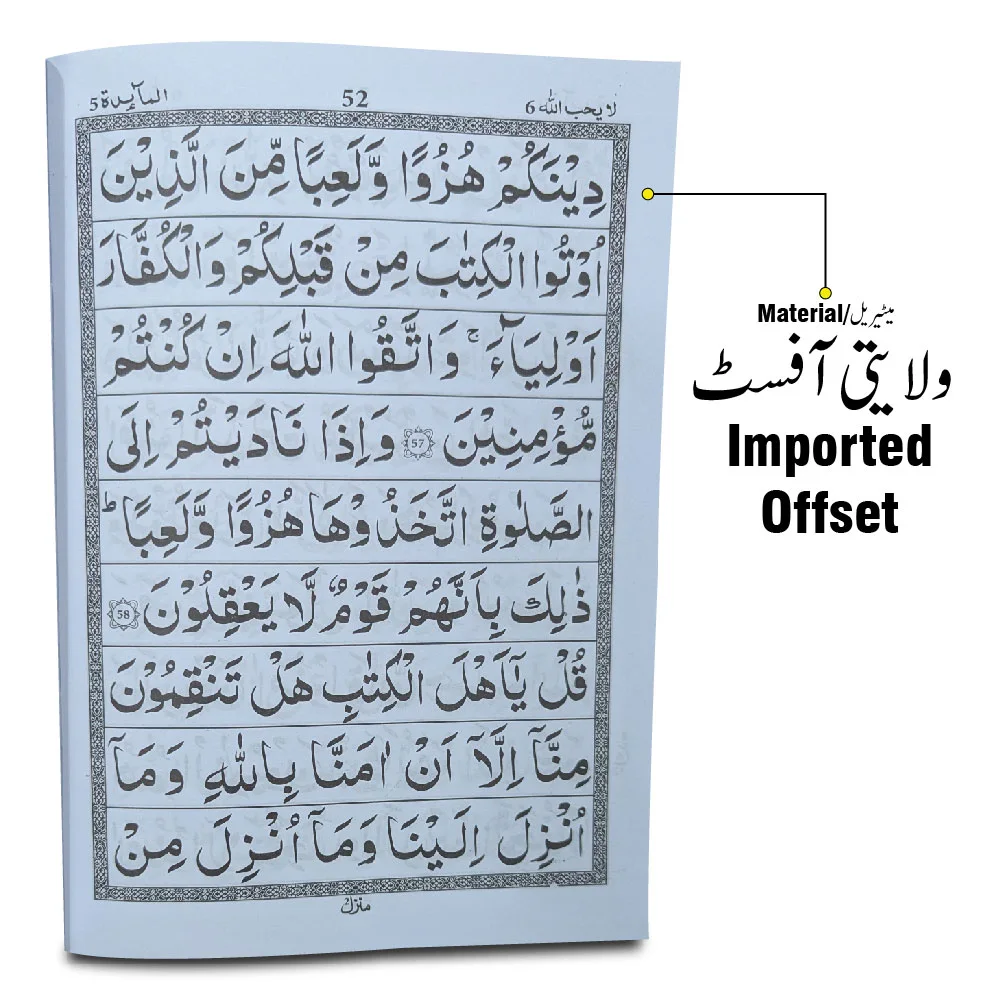 المآئدة 5
52
لا یحب الله 6
دِیْنَكُمْ هُزُوًا وَّلَعِبًا مِّنَ الَّذِیْنَ
اُوْتُوا الْكِتٰبَ مِنْ قَبْلِكُمْ وَالْكُفَّارَ
اَوْلِیَآءَ ۚ وَاتَّقُوا اللّٰهَ اِنْ كُنْتُمْ
مُّؤْمِنِیْنَ 57 وَاِذَا نَادَیْتُمْ اِلَی
الصَّلٰوةِ اتَّخَذُوْهَا هُزُوًا وَّلَعِبًا ؕ
ذٰلِكَ بِاَنَّهُمْ قَوْمٌ لَّا یَعْقِلُوْنَ 58
قُلْ یٰۤاَهْلَ الْكِتٰبِ هَلْ تَنْقِمُوْنَ
مِنَّاۤ اِلَّاۤ اَنْ اٰمَنَّا بِاللّٰهِ وَمَاۤ
اُنْزِلَ اِلَیْنَا وَمَاۤ اُنْزِلَ مِنْ
منزل
Material/میٹیریل
ولایتی آفسٹ
Imported
Offset